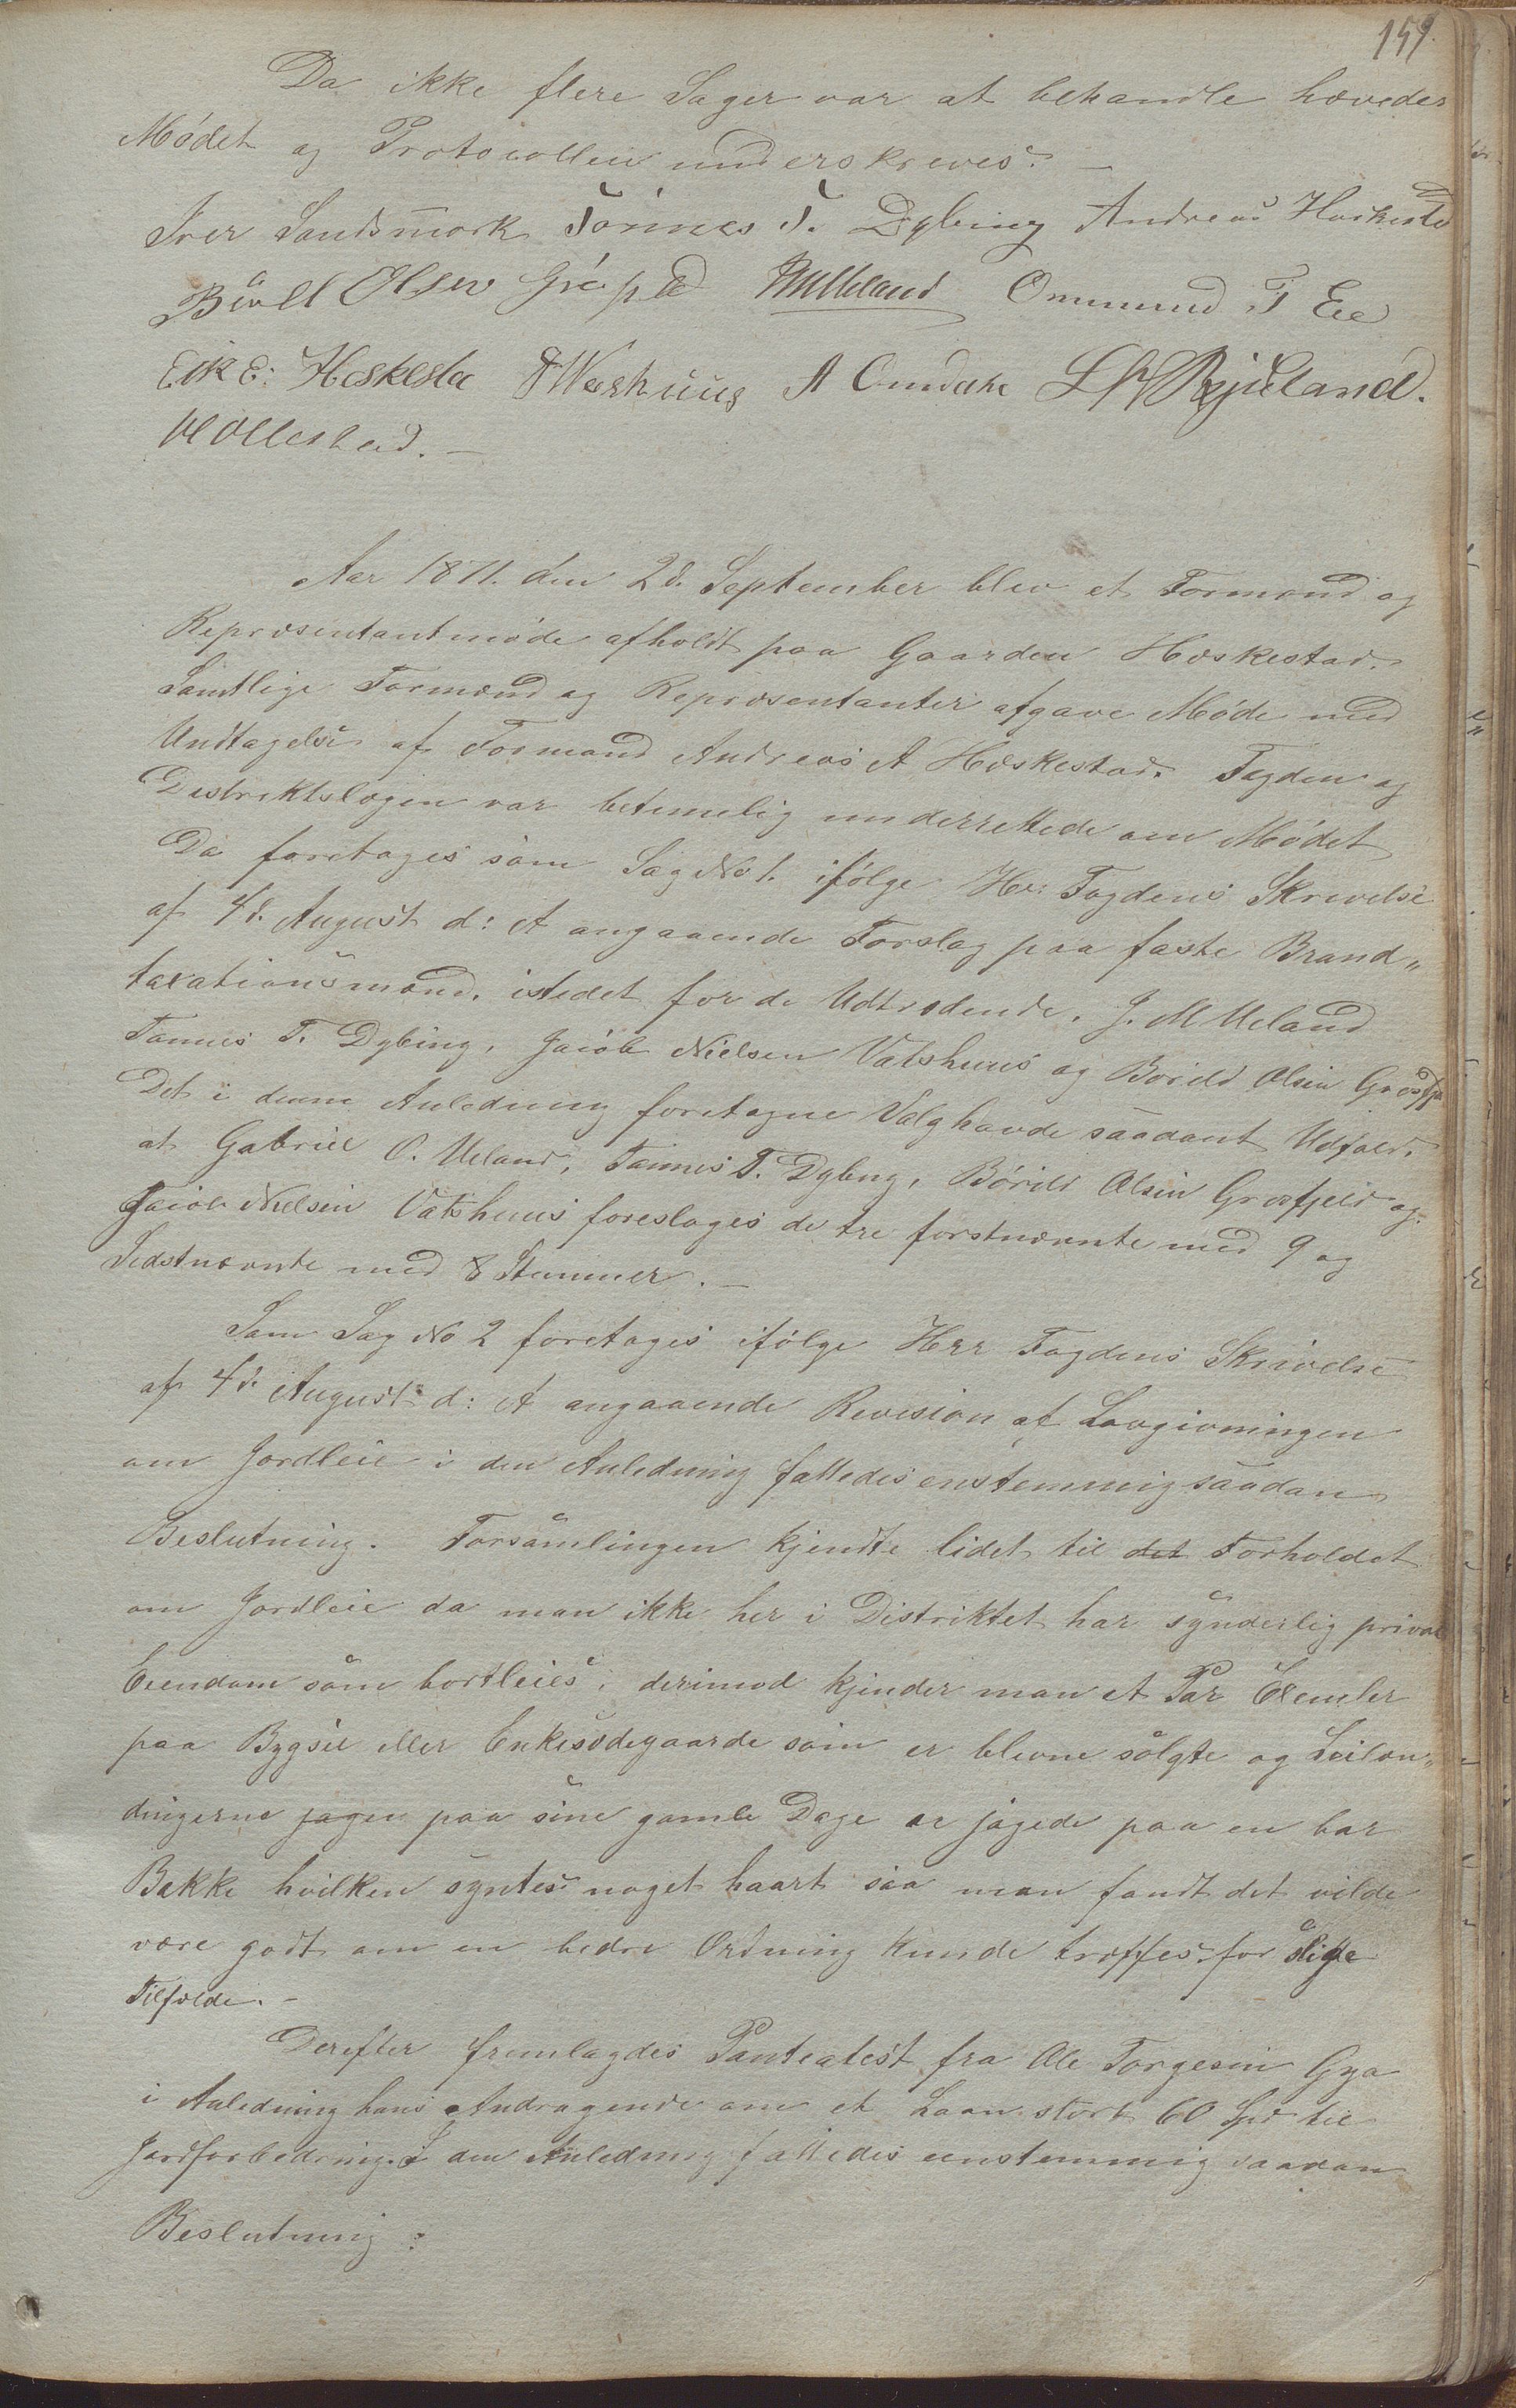 159.
Da ikke flere Sager var at behandle hævedes
Mødet og Protocollen underskreves. —
Iver Landsmark Tønnes T. Dybing Andreas Heskestd
Bårll Olsen Grøpld JMUeland Ommund T Eie
Eik E: Heskesta Watshuus A Omdahl Skjeland.
Ollestad. —
Aar 1871. den 2d. September blev et Formænd og
Repræsentantmøde afholdt paa Gaarden Heskestad.
Samtlige Formænd og Repræsentanter afgave Møde med
Undtagelse af Formand Andreas A Heskestad. Fogden og
Destriktslægen var betimelig underrettede om Mødet
Da foretages som Sag No 1. ifølge Hr: Fogdens Skrivelse
af 4d. August d: A angaaende Forslag paa faste Brand„
taxationsmænd, istedet for de Udtrædende, J. M Ueland
Tønnes T. Dybing, Jacob Nielsen Vatshuus og Børild Olsen Grøsfj
Det i denne Anledning foretagne Valg havde saadant Udfald,
at Gabriel O. Ueland, Tønnes T. Dybing, Børild Olsen Grøsfjeld og
Jacob Nielsen Vatshuus foreslages de tre forstnævnte med 9 og
Sidstnævnte med 8 Stemmer. —
Som Sag No 2 foretages ifølge Herr Fogdens Skrivelse
af 4d. August d: A angaaende Revision af Lovgivningen
om Jordleie i den Anledning fattedes enstemmig saadan
Beslutning. Forsamlingen kjendte lidet til det Forholdet
om Jordleie da man ikke her i Distriktet har synderlig privat
Eiendom som bortleies, derimod kjender man et Par Exemler
paa Bygsel eller Enkesædegaarde som er blevne solgte og Leilæn„
dingerne jagen paa sine gamle Dage er jagede paa en bar
Bakke hvilken syntes noget haart saa man fandt det vilde
være godt om en bedre Ordning kunde træffes for slige
Tilfælde. —
Derefter fremlagdes Panteatest fra Ole Torgesen Gya
i Anledning hans Andragende om et Laan stort 60 Spd til
Jordforbedring. I den Anledning fattedes eenstemmig saadan
Beslutning: